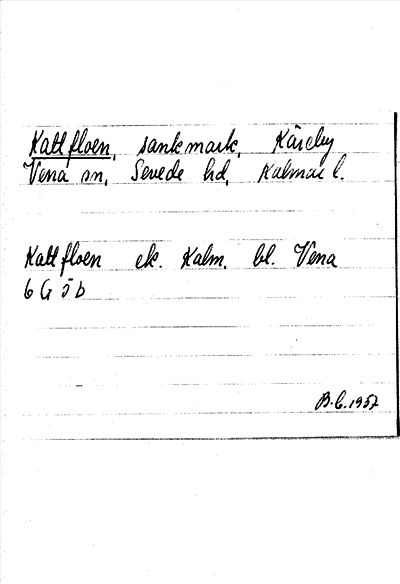 Kattfloen, sankmark, Käreby
Vena sn, Sevede hd, Kalmar l.
Kattfloen ek. Kalm. bl. Vena
6 G ö b
B.C. 1957